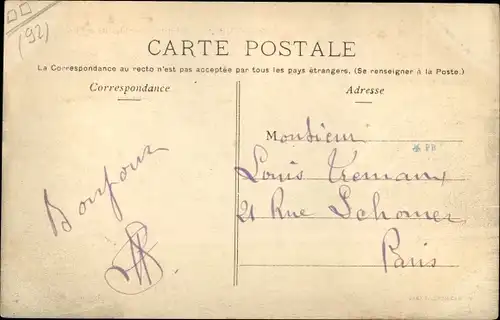 (92)
CARTE POSTALE
La Correspondance au recto n'est pas acceptée par tous les pays étrangers. (Se renseigner à la Poste.)
Correspondance
Adresse
Monsieur
Louis Tremaux
21 Rue Schomer
Paris
Bonjour